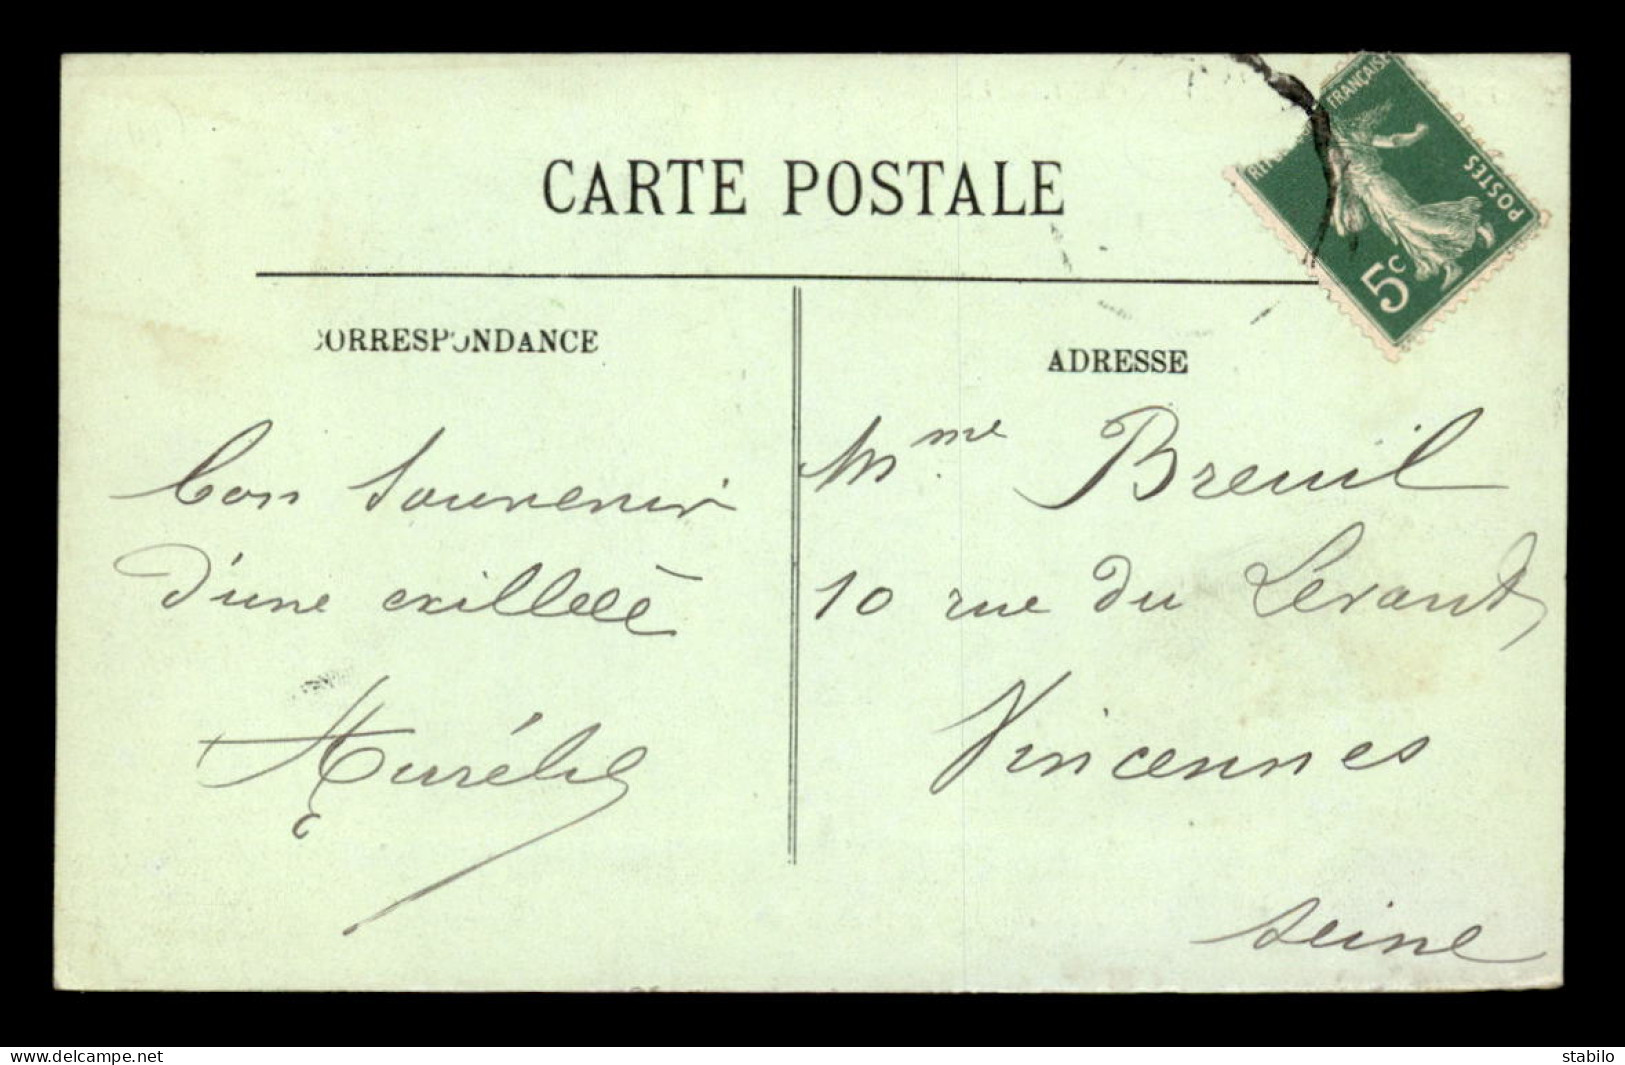 CARTE POSTALE
RÉPUBLIQUE FRANÇAISE
POSTES
5c
CORRESPONDANCE
ADRESSE
bon souvenir
d'une exilleeè
Aurélie
Mme Breuil
10 rue du Levant
Vincennes
Seine
www.delcampe.net
stabilo